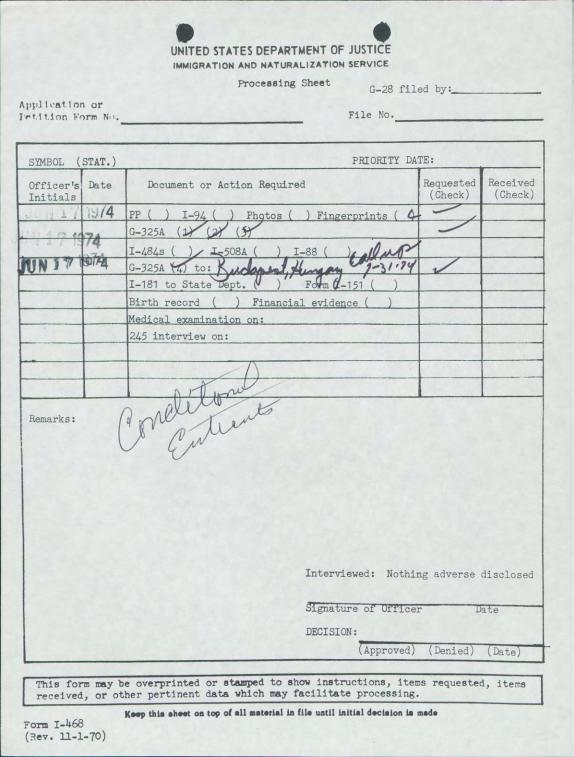 UNITED STATES DEPARTMENT OF JUSTICE
IMMIGRATION AND NATURALIZATION SERVICE
Processing Sheet
G-28 filed by:
Application or
Petition Form No.
File No.
SYMBOL (STAT.) PRIORITY DATE:
Officer's Initials Date Document or Action Required Requested (Check) Received (Check)
JUN 17 1974 PP ( ) I-94 ( ) Photos ( ) Fingerprints ( 4
JUN 17 1974 G-325A (1) (2) (3)
I-484s ( ) I-508A ( ) I-88 ( ) Call up
JUN 17 1974 G-325A (4) to: Budapest, Hungary 7-31-74
I-181 to State Dept. ( ) Form I-151 ( )
Birth record ( ) Financial evidence ( )
Medical examination on:
245 interview on:
Conditional
Entrants
Remarks:
Interviewed: Nothing adverse disclosed
Signature of Officer Date
DECISION:
(Approved) (Denied) (Date)
This form may be overprinted or stamped to show instructions, items requested, items
received, or other pertinent data which may facilitate processing.
Keep this sheet on top of all material in file until initial decision is made
Form I-468
(Rev. 11-1-70)